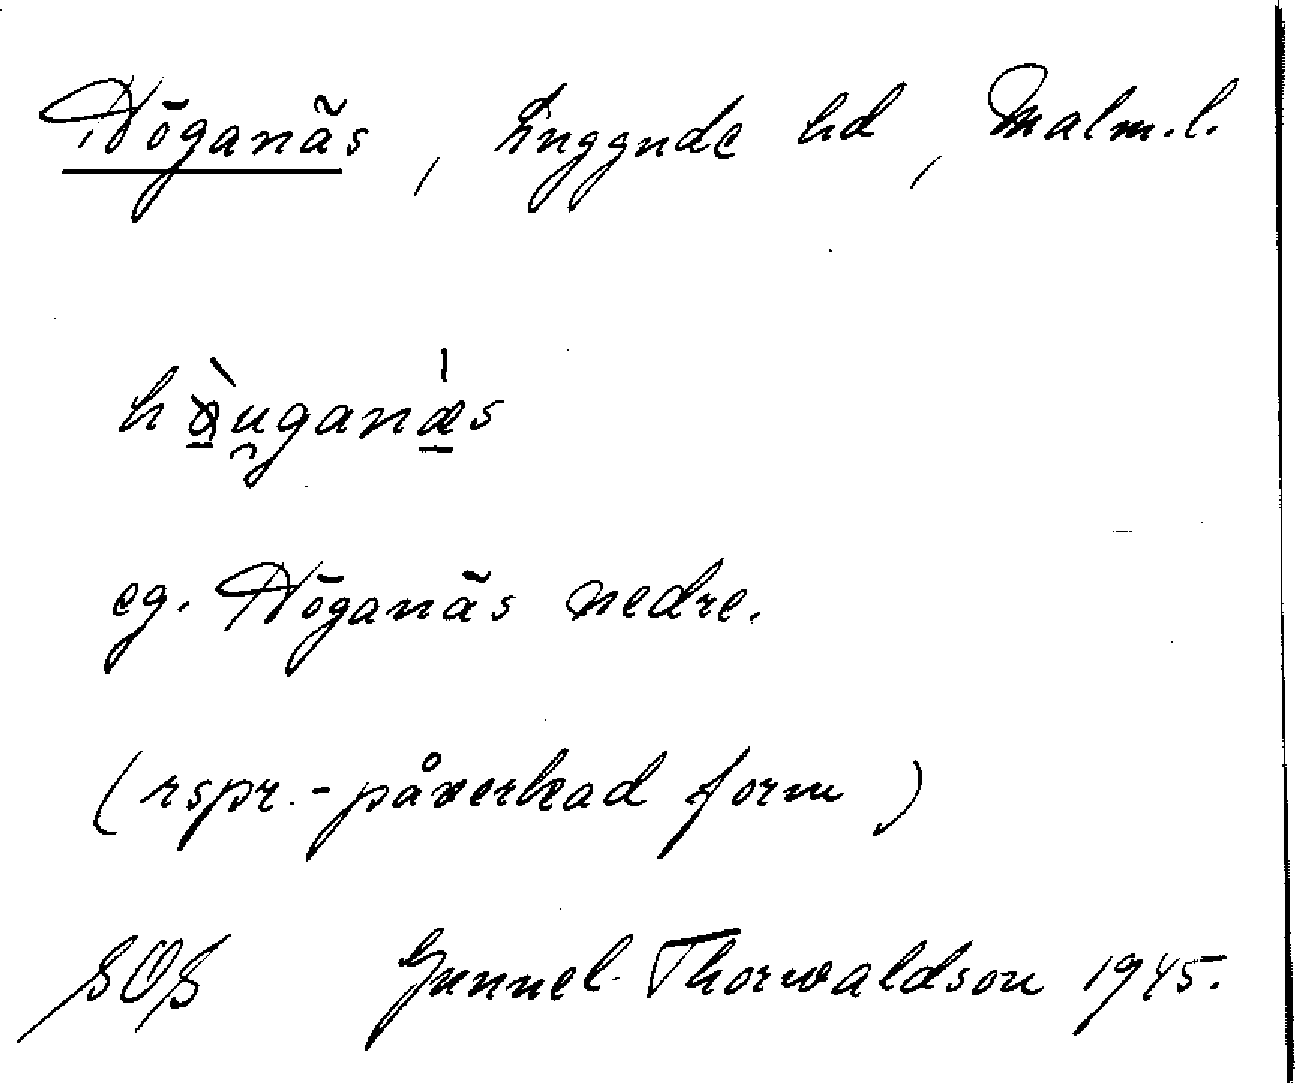 Höganäs, Luggude hd, Malm. l.
hæ̀u̯ganæ̍s
eg. Höganäs nedre.
(rspr.-påverkad form)
SOS Gunnel Thorwaldson 1945.